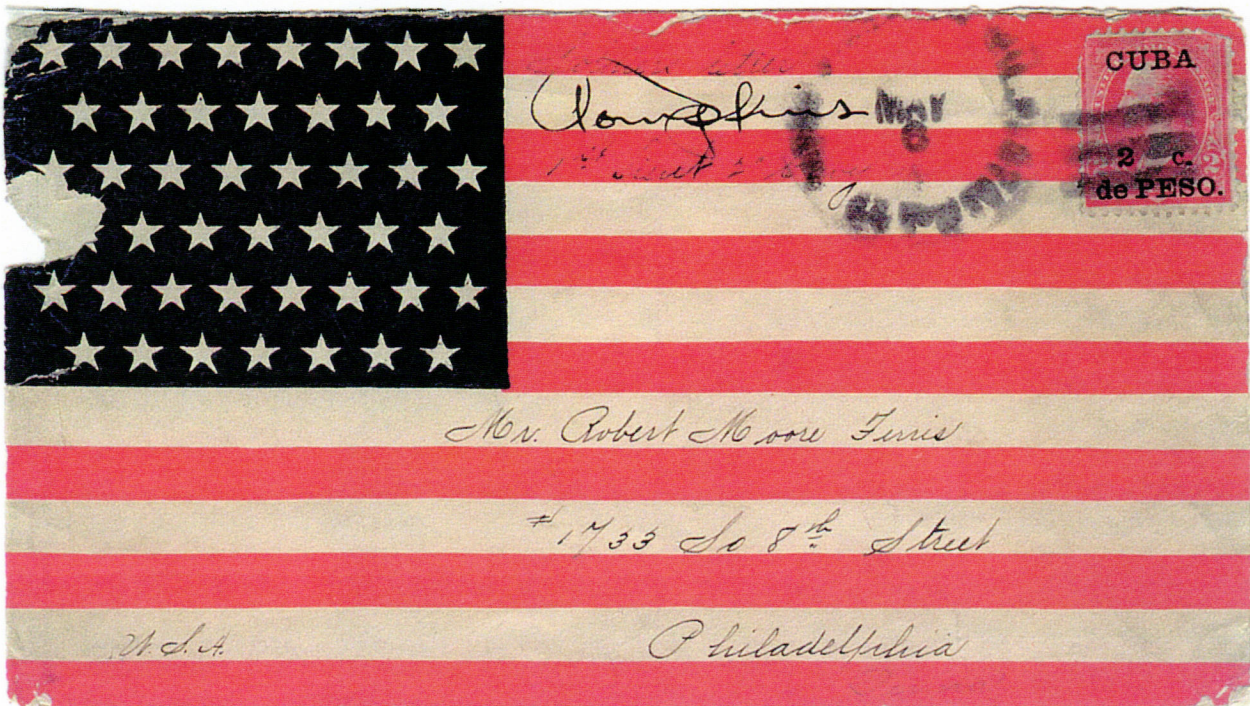 Tompkins
MAY
CUBA
2 c.
de PESO.
2 2
Mr. Robert Moore Ferris
# 1733 So 8th Street
Philadelphia
U.S.A.